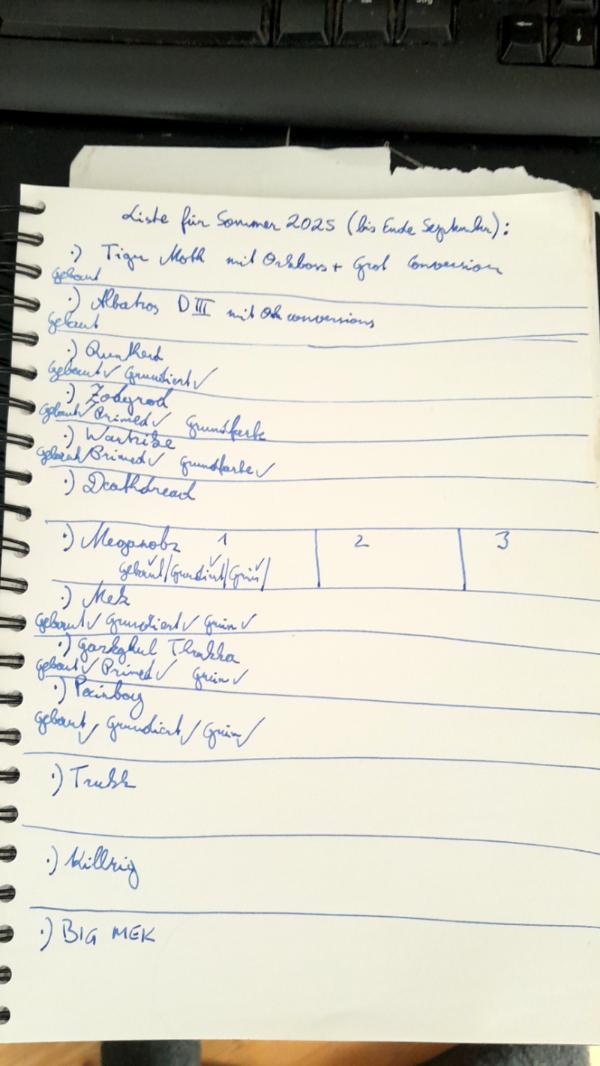 Liste für Sommer 2025 (bis Ende September):
·) Tiger Moth mit Orkboss + Grot Conversion
gebaut
·) Albatros D III mit Ork conversions
gebaut
·)
Gebaut✓ Grundiert✓
·) Zodgrod
gebaut✓ Primed✓ Grundfarbe
·) Warbike
gebaut✓ Primed✓ Grundfarbe✓
·) Deathdread
·) Meganobz 1 2 3
gebaut✓ | Grundiert✓ | Grün✓ |
·) Mek
gebaut✓ Grundiert✓ Grün✓
·) Gazhgkul Thrakka
gebaut✓ Primed✓ Grün✓
·) Painboy
gebaut✓ Grundiert✓ Grün✓
·) Trukk
·) Killrig
·) BIG MEK